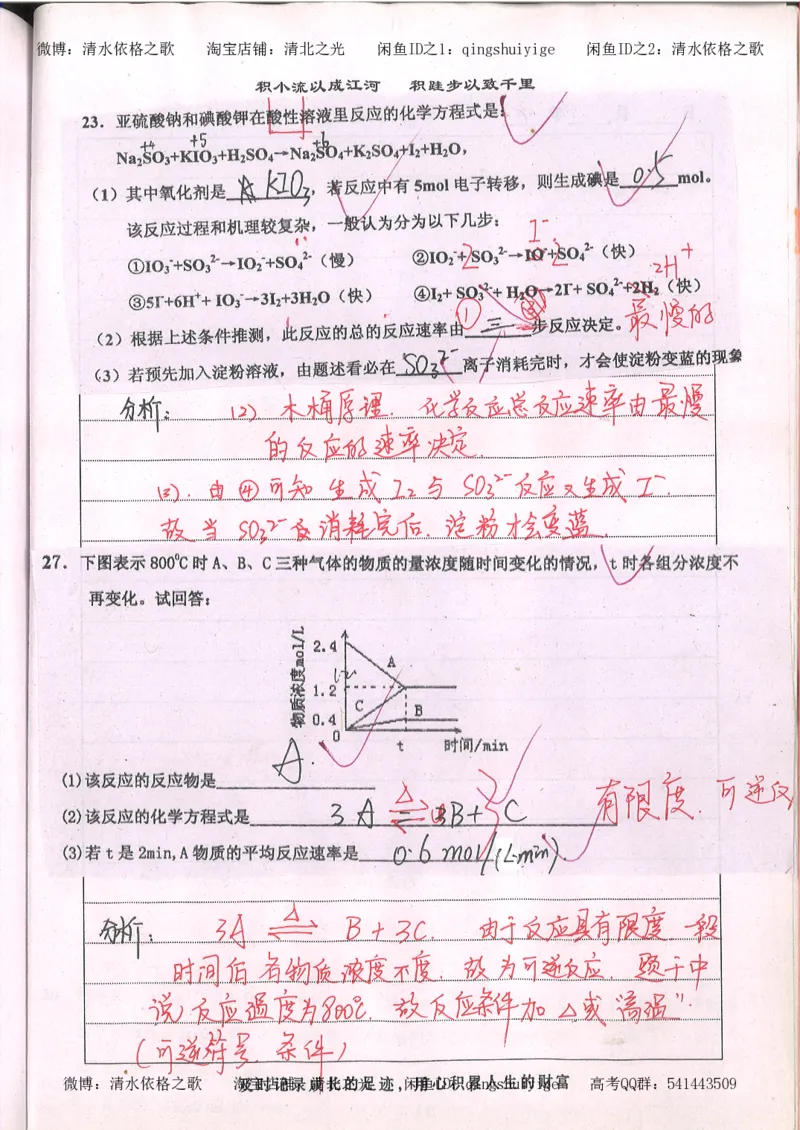 微博：清水依格之歌 淘宝店铺：清北之光 闲鱼ID之1：qingshuiyige 闲鱼ID之2：清水依格之歌
积小流以成江河 积跬步以致千里
23. 亚硫酸钠和碘酸钾在酸性溶液里反应的化学方程式是：
+4 +5 +6
Na₂SO₃+KIO₃+H₂SO₄→Na₂SO₄+K₂SO₄+I₂+H₂O，
（1）其中氧化剂是 KIO₃，若反应中有 5mol 电子转移，则生成碘是 0.5 mol。
该反应过程和机理较复杂，一般认为分为以下几步：
I⁻
①IO₃⁻+SO₃²⁻→IO₂⁻+SO₄²⁻（慢） ②IO₂⁻+2SO₃²⁻→IO⁻+2SO₄²⁻（快）
2H⁺
③5I⁻+6H⁺+IO₃⁻→3I₂+3H₂O（快） ④I₂+SO₃²⁻+H₂O→2I⁻+SO₄²⁻+2H₂（快）
①
（2）根据上述条件推测，此反应的总的反应速率由 三 步反应决定。最慢的
（3）若预先加入淀粉溶液，由题述看必在 SO₃²⁻ 离子消耗完时，才会使淀粉变蓝的现象
分析： (2) 木桶原理. 化学反应总反应速率由最慢
的反应的速率决定.
(3). 由④可知 生成 I₂ 与 SO₃²⁻反应又生成 I⁻.
故当 SO₃²⁻ 消耗完后. 淀粉才会变蓝.
27. 下图表示 800⁰C 时 A、B、C 三种气体的物质的量浓度随时间变化的情况，t 时各组分浓度不
再变化。试回答：
物质浓度mol/L
2.4
A
1.2
C
B
0.4
0
t 时间/min
(1)该反应的反应物是 A.
(2)该反应的化学方程式是 3A △ ⇌ B+3C 有限度. 可逆反
(3)若 t 是 2min,A 物质的平均反应速率是 0.6 mol/(L·min).
分析： 3A △⇌ B+3C. 由于反应具有限度 一段
时间后 各物质浓度不变. 故为可逆反应. 题干中
说反应温度为800℃. 故反应条件加 △ 或 "高温".
(可逆符号. 条件)
微博：清水依格之歌 淘宝店铺：清北之光 闲鱼ID之1：qingshuiyige 高考QQ群：541443509
及时记录成长的足迹，用心积累人生的财富